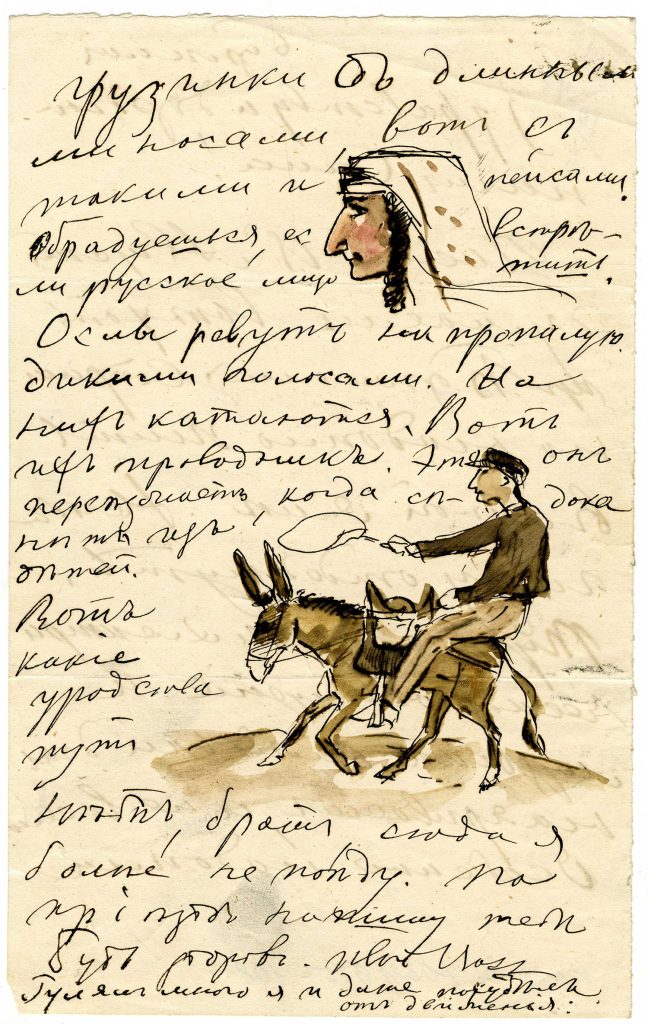 грузинки съ длиннѣй
ми носами, вотъ съ
такими и пейсами.
Обрадуешься, ес встрѣ-
ли русское лицо тить.
Ослы ревутъ на пропалую
дикими голосами. На
нихъ катаются. Вотъ
ихъ проводникъ. онъ
когда сѣ- дока
нѣтъ
дѣтей.
Вотъ
какіе
уродства
тутъ
Нѣтъ, братъ, сюда я
болѣе не поѣду. На
тебѣ
Будь здоровъ. твой
Гуляемъ много я и даже похудѣлъ
отъ движенья.